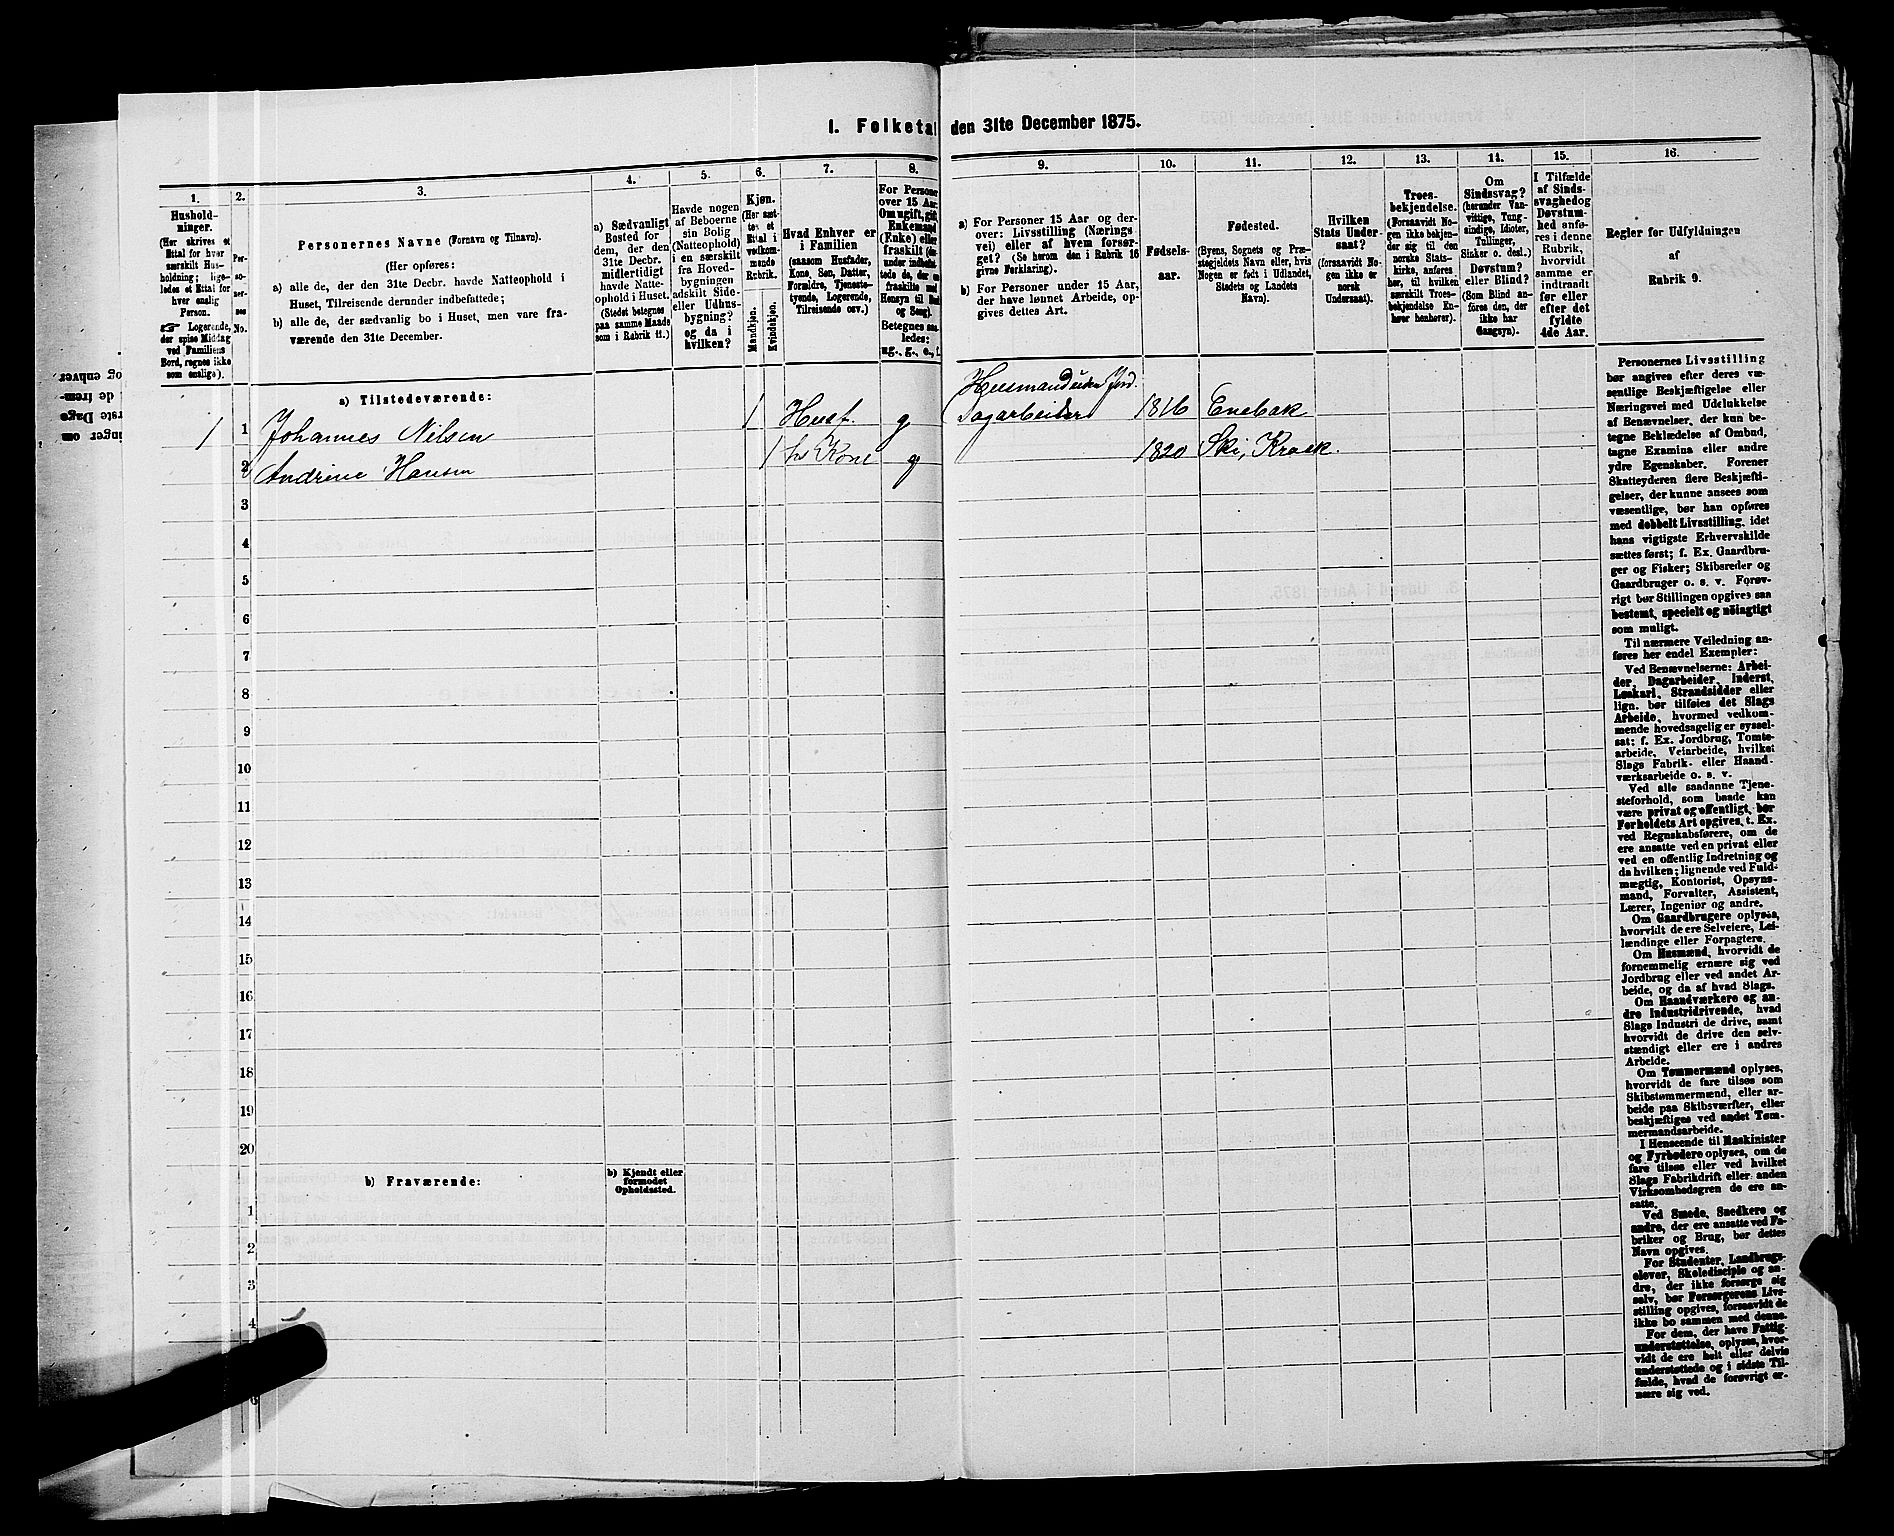 1. Folketal den 31te December 1875.
1.
Hushold-
ninger.
(Her skrives et
Ettal for hver
særskilt Hus-
holdning; lige-
ledes et Ettal for
hver enslig
Person.
☞ Logerende,
der spise Middag
ved Familiens
Bord, regnes ikke
som enslige).
2.
Per-
so-
ner-
nes
No.
3.
Personernes Navne (Fornavn og Tilnavn).
(Her opføres:
a) alle de, der den 31te Decbr. havde Natteophold i
Huset, Tilreisende derunder indbefattede;
b) alle de, der sædvanlig bo i Huset, men vare fra-
værende den 31te December.
4.
a) Sædvanligt
Bosted for
dem, der den
31te Decbr.
midlertidigt
havde Natte-
ophold i Huset.
(Stedet betegnes
paa samme Maade
som i Rubrik 11.)
5.
Havde nogen
af Beboerne
sin Bolig
(Natteophold)
i en særskilt
fra Hoved-
bygningen
adskilt Side-
eller Udhus-
bygning?
og da i
hvilken?
6.
Kjøn.
(Her sæt-
tes et
Ettal i
vedkom-
mende
Rubrik.
Mandkjøn.
Kvindekjøn.
7.
Hvad Enhver er
i Familien
(saasom Husfader,
Kone, Søn, Datter,
Forældre, Tjeneste-
tyende, Logerende,
Tilreisende osv.)
8.
For Personer
over 15 Aar:
Om ugift, gift,
Enkemand
(Enke) eller
fraskilt
Betegnes saa-
ledes:
ug., g., e., f.
9.
a) For Personer 15 Aar og der-
over: Livsstilling (Nærings
vei) eller af hvem forsør-
get? (Se herom den i Rubrik 16
givne Forklaring).
b) For Personer under 15 Aar,
der have lønnet Arbeide, op-
gives dettes Art.
10.
Fødsels-
aar.
11.
Fødested.
(Byens, Sognets og Præ-
stegjeldets Navn eller, hvis
Nogen er født i Udlandet,
Stedets og Landets
Navn).
12.
Hvilken
Stats Under-
saat?
(forsaavidt No-
gen ikke er
norsk
Undersaat).
13.
Troes-
bekjendelse.
(Forsaavidt No-
gen ikke bekjen-
der sig til den
norske Stats-
kirke, anføres
her, til hvilken
særskilt Troes-
bekjendelse En-
hver henhører).
14.
Om
Sindssvag?
(herunder Van-
vittige, Tung-
sindige, Idioter,
Tullinger,
Sinker o. desl.)
Døvstum?
eller Blind?
(Som Blind an-
føres den, der
ikke har
Gangsyn).
15.
I Tilfælde
af Sinds-
svaghed og
Døvstum-
hed anfø-
res i denne
Rubrik,
hvorvidt
samme er
indtraadt
før eller
efter det
fyldte
4de Aar.
16.
Regler for Udfyldningen
af
Rubrik 9.
a) Tilstedeværende:
1 1 Johannes Nilsen 1 Husf. g Husmand uden Jord. Dagarbeider 1816 Enebak
2 Andrine Hansen 1 hs Kone g 1820 Ski, Kraak.
3
4
5
6
7
8
9
10
11
12
13
14
15
16
17
18
19
20
b) Fraværende:
b) Kjendt eller
formodet
Opholdssted.
1
2
3
4
6
Personernes Livsstilling
bør angives efter deres væ-
sentlige Beskjæftigelse eller
Næringsvei med Udelukkelse
af Benævnelser, der kun be-
tegne Beklædelse af Ombud,
tagne Examina eller andre
ydre Egenskaber. Forener
Skatteyderen flere Beskjæfti-
gelser, der kunne ansees som
væsentlige, bør han opføres
med dobbelt Livsstilling, idet
hans vigtigste Erhvervskilde
sættes først; f. Ex. Gaardbru-
ger og Fisker; Skibsreder og
Gaardbruger o. s. v. Forøv-
rigt bør Stillingen opgives saa
bestemt, specielt og nöiagtigt
som muligt.
Til nærmere Veiledning an-
føres her endel Exempler:
Ved Benævnelserne: Arbei-
der, Dagarbeider, Inderst,
Løskarl, Strandsidder eller
lign. bør tilføies det Slags
Arbeide, hvormed vedkom-
mende hovedsagelig er syssel-
sat; f. Ex. Jordbrug, Tomte-
arbeide, Veiarbeide, hvilket
Slags Fabrik- eller Haand-
værksarbeide o. s. v.
Ved alle saadanne Tjene-
steforhold, som baade kan
være privat og offentligt, bør
Forholdets Art opgives, t. Ex.
ved Regnskabsførere, om de
ere ansatte ved en privat eller
ved en offentlig Indretning og
da hvilken; lignende ved Fuld-
mægtig, Kontorist, Opsyns-
mand, Forvalter, Assistent,
Lærer, Ingeniør og andre.
Om Gaardbrugere oplyses,
hvorvidt de ere Selveiere, Lei-
lændinge eller Forpagtere.
Om Husmænd, hvorvidt de
fornemmelig ernære sig ved
Jordbrug eller ved andet Ar-
beide, og da af hvad Slags.
Om Haandværkere og an-
dre Industridrivende, hvad
Slags Industri de drive, samt
hvorvidt de drive den selv-
stændigt eller ere i andres
Arbeide.
Om Tømmermænd oplyses,
hvorvidt de fare tilsøs som
Skibstømmermænd, eller ar-
beide paa Skibsværfter, eller
beskjæftiges ved andet Tøm-
mermandsarbeide.
I Henseende til Maskinister
og Fyrbødere oplyses, om de
fare tilsøs eller ved hvilket
Slags Fabrikdrift eller anden
Virksomhedsgren de ere an-
satte.
Ved Smede, Snedkere og
andre, der ere ansatte ved Fa-
briker og Brug, bør dettes
Navn opgives.
For Studenter, Landbrugs-
elever, Skoledisciple og an-
dre, der ikke forsørge sig
selv, bør Forsørgerens Livs-
stilling opgives, forsaavidt de
ikke bo sammen med denne.
For dem, der have Fattig-
understøttelse, oplyses, hvor-
vidt de ere helt eller delvis
understøttede og i sidste Til-
fælde, hvad de forøvrigt er-
nære sig ved.